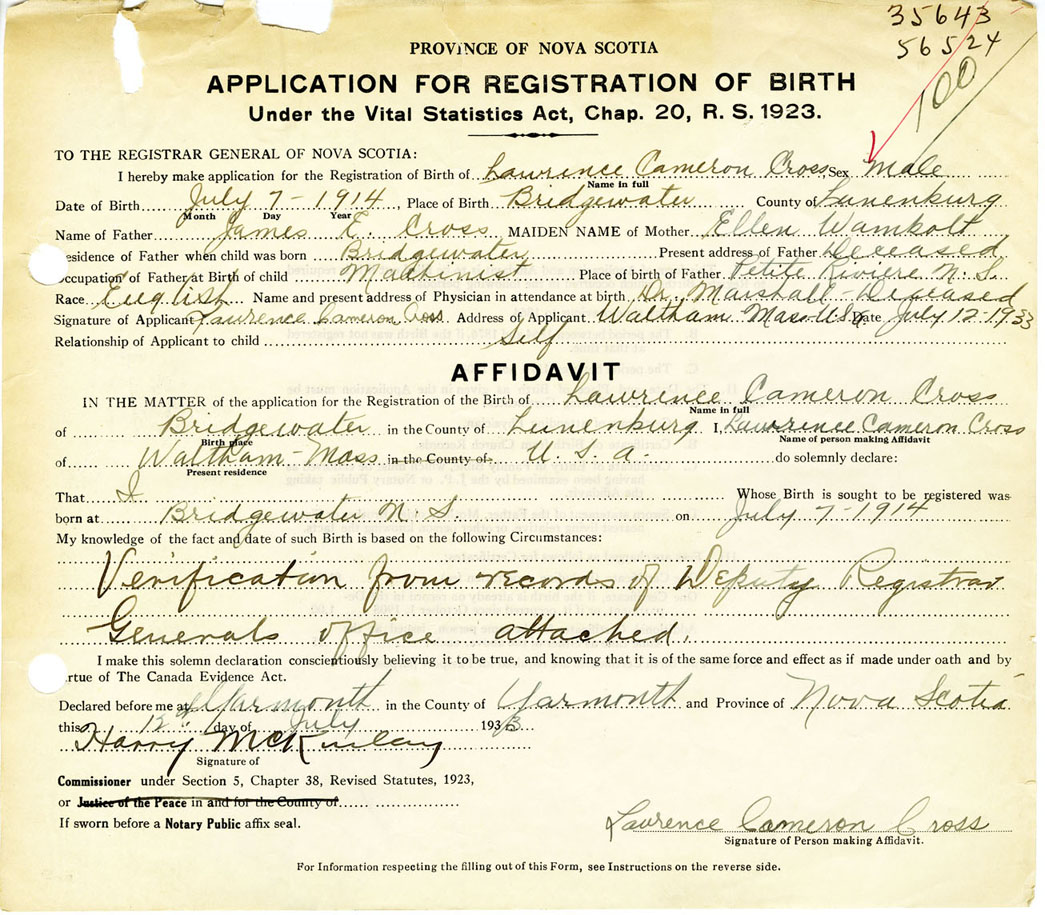 35643
56524
100
PROVINCE OF NOVA SCOTIA
APPLICATION FOR REGISTRATION OF BIRTH
Under the Vital Statistics Act, Chap. 20, R. S. 1923.
TO THE REGISTRAR GENERAL OF NOVA SCOTIA:
I hereby make application for the Registration of Birth of Lawrence Cameron Cross Sex Male
Name in full
Date of Birth July 7 - 1914, Place of Birth Bridgewater County of Lunenburg
Month Day Year
Name of Father James E. Cross MAIDEN NAME of Mother Ellen Wamkolt
esidence of Father when child was born Bridgewater Present address of Father Deceased
Occupation of Father at Birth of child Machinist Place of birth of Father Petite Riviere N. S.
Race English Name and present address of Physician in attendance at birth Dr. Marshall - Deceased
Signature of Applicant Lawrence Cameron Cross Address of Applicant Waltham Mass USA Date July 12-1933
Relationship of Applicant to child Self
AFFIDAVIT
IN THE MATTER of the application for the Registration of the Birth of Lawrence Cameron Cross
Name in full
of Bridgewater in the County of Lunenburg I, Lawrence Cameron Cross
Birth place Name of person making Affidavit
of Waltham - Mass in the County of U. S. A. do solemnly declare:
Present residence
That I Whose Birth is sought to be registered was
born at Bridgewater N. S. on July 7 - 1914
My knowledge of the fact and date of such Birth is based on the following Circumstances:
Verification from records of Deputy Registrar
Generals office attached.
I make this solemn declaration conscientiously believing it to be true, and knowing that it is of the same force and effect as if made under oath and by
rtue of The Canada Evidence Act.
Declared before me at Yarmouth in the County of Yarmouth and Province of Nova Scotia
this 12th day of July 1933
Harry McKinlay
Signature of
Commissioner under Section 5, Chapter 38, Revised Statutes, 1923,
or Justice of the Peace in and for the County of
If sworn before a Notary Public affix seal.
Lawrence Cameron Cross
Signature of Person making Affidavit.
For Information respecting the filling out of this Form, see Instructions on the reverse side.